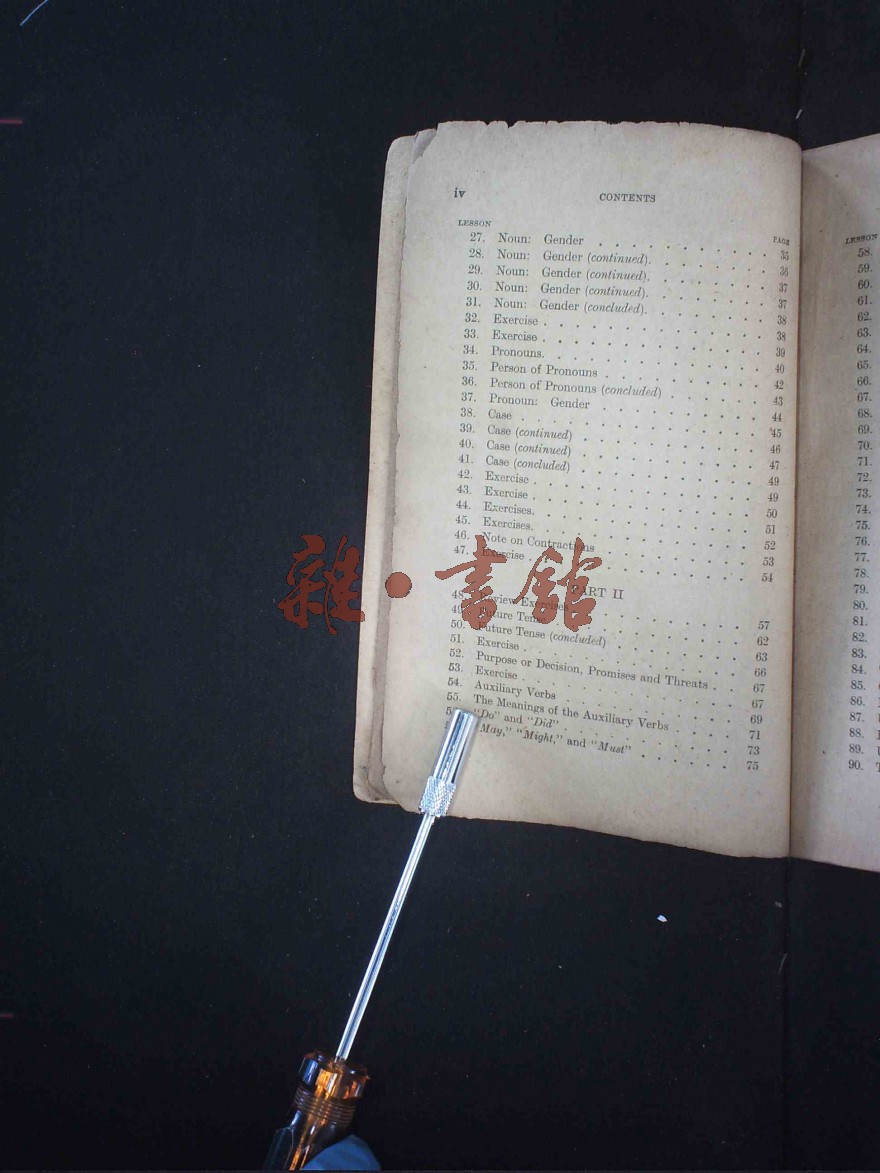 iv CONTENTS
LESSON PAGE
27. Noun: Gender 35
28. Noun: Gender (continued). 36
29. Noun: Gender (continued). 37
30. Noun: Gender (continued). 37
31. Noun: Gender (concluded). 38
32. Exercise 38
33. Exercise 39
34. Pronouns. 40
35. Person of Pronouns 42
36. Person of Pronouns (concluded) 43
37. Pronoun: Gender 44
38. Case 45
39. Case (continued) 46
40. Case (continued) 47
41. Case (concluded) 49
42. Exercise 49
43. Exercise 50
44. Exercises. 51
45. Exercises. 52
46. Note on Contractions 53
47. Exercise 54
PART II
48. Review Exercises 57
49. Future Tense 62
50. Future Tense (concluded) 63
51. Exercise 66
52. Purpose or Decision, Promises and Threats 67
53. Exercise 67
54. Auxiliary Verbs 69
55. The Meanings of the Auxiliary Verbs 71
"Do" and "Did" 73
"May," "Might," and "Must" 75
LESSON
58.
59.
60.
61.
62.
63.
64.
65.
66.
67.
68.
69.
70.
71.
72.
73.
74.
75.
76.
77.
78.
79.
80.
81.
82.
83.
84.
85.
86.
87.
88.
89.
90.
雜·書館